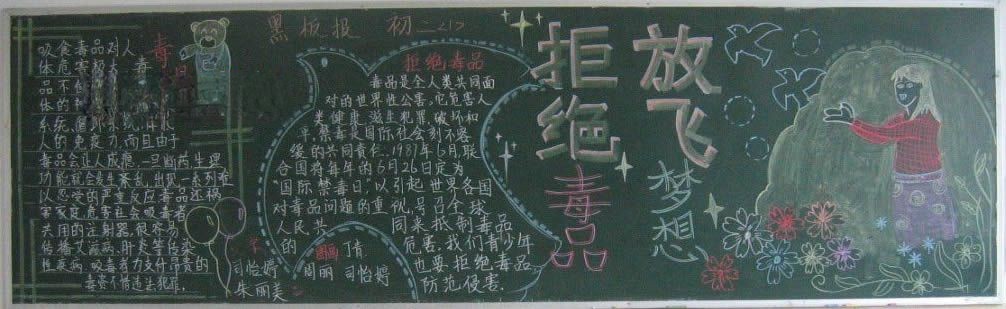 黑板报 初二<1>
毒品
吸食毒品对人
体危害极大,毒
品不但
体的神
系统、
人的免疫力,而且由于
毒品会让人成瘾,一旦断药生理
功能就会发生紊乱,出现一系列难
以忍受的严重反应毒品还祸
害家庭,危害社会吸毒者
共用的注射器,很容易
传播艾滋病,肝炎等传染
性疾病,吸毒者为支付昂贵的
毒资不惜违法犯罪.
拒绝毒品
毒品是全人类共同面
对的世界性公害,它危害人
类健康,滋生犯罪,破坏和
平,禁毒是国际社会刻不容
缓的共同责任.1987年6月,联
合国将每年的6月26日定为
"国际禁毒日",以引起世界各国
对毒品问题的重视,号召全球
人民共同来抵制毒品
的危害.我们青少年
也要拒绝毒品
防范侵害.
字:
司怡婷
朱丽美
画:
周丽 司怡婷
拒绝毒品
放飞梦想